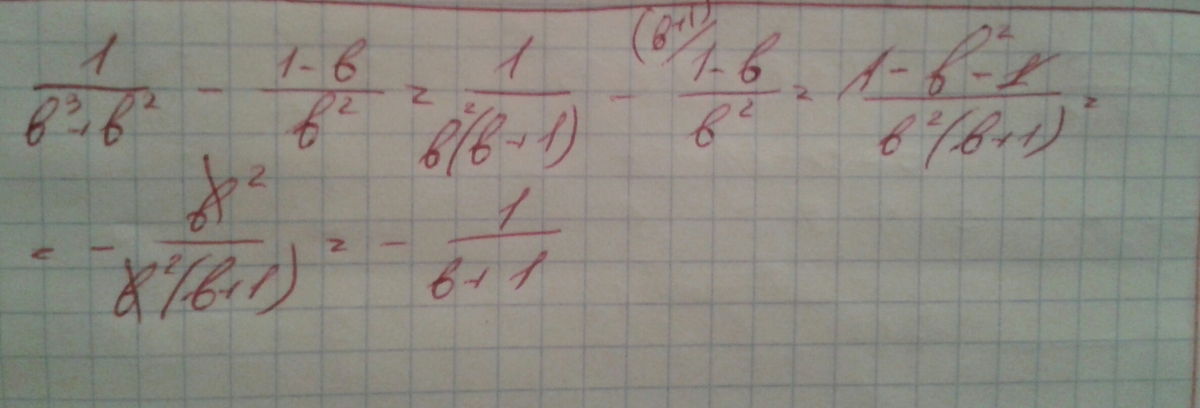 1/(b³+b²) - (1-b)/b² = 1/(b²(b+1)) - (b+1)/ (1-b)/b² = (1-b²-1)/(b²(b+1)) =
= - b²/(b²(b+1)) = - 1/(b+1)